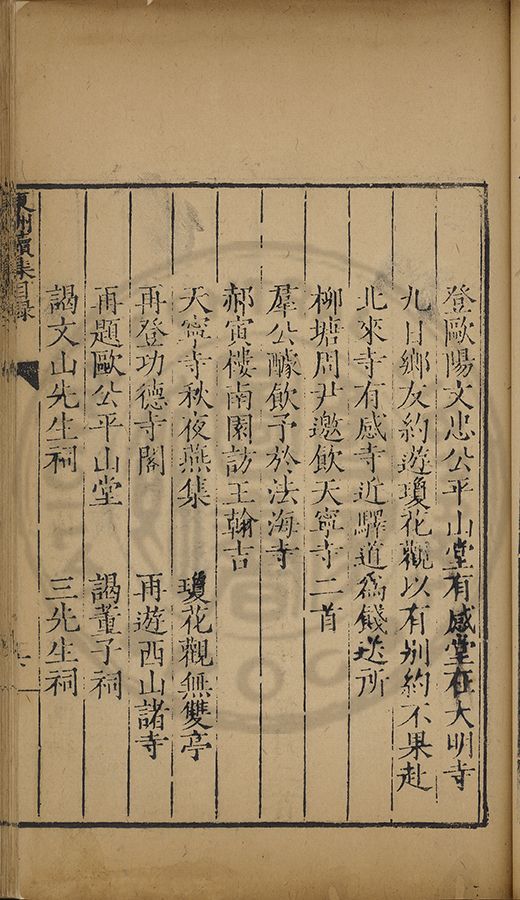 登歐陽文忠公平山堂有感堂在大明寺
九日鄉友約遊瓊花觀以有別約不果赴
北來寺有感寺近驛道爲餞送所
柳塘周尹邀飲天寧寺二首
羣公醵飲予於法海寺
郝寅樓南園訪王翰吉
天寧寺秋夜燕集 瓊花觀無雙亭
再登功德寺閣 再遊西山諸寺
再題歐公平山堂 謁董子祠
謁文山先生祠 三先生祠
東洲續集目錄